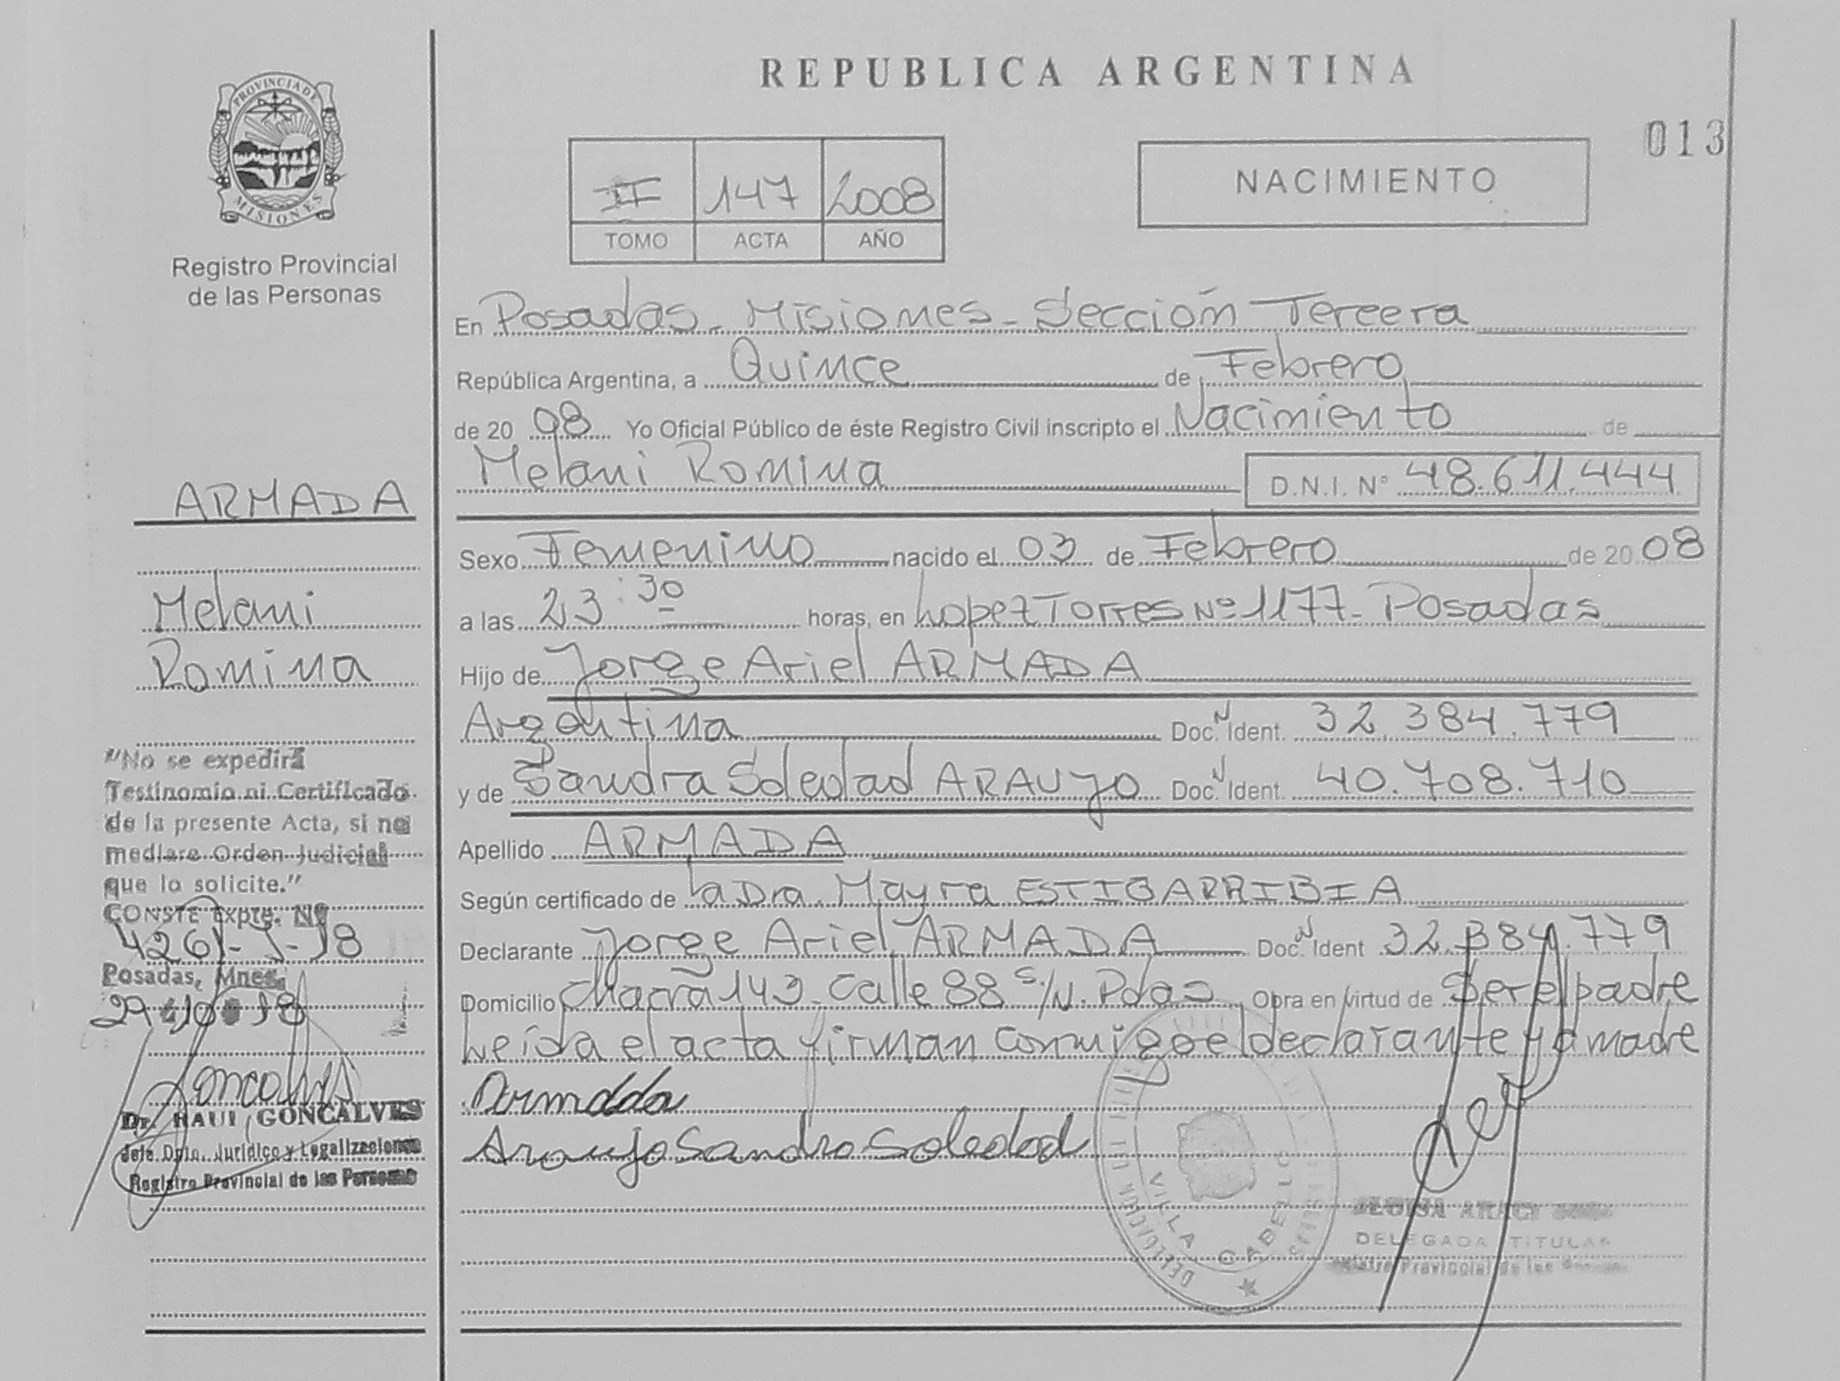 REPUBLICA ARGENTINA
013
PROVINCIA DE MISIONES
Registro Provincial
de las Personas
II 147 2008
TOMO ACTA AÑO
NACIMIENTO
En Posadas - Misiones - Sección Tercera
República Argentina, a Quince de Febrero
de 20 08 Yo Oficial Público de éste Registro Civil inscripto el Nacimiento de
Melani Romina D.N.I. Nº 48.611.444
Sexo Femenino nacido el 03 de Febrero de 20 08
a las 23:30 horas, en Lopez Torres Nº 1177 - Posadas
Hijo de Jorge Ariel ARMADA
Argentina Doc. N Ident. 32.384.779
y de Sandra Soledad ARAUJO Doc. N Ident. 40.708.710
Apellido ARMADA
Según certificado de la Dra. Mayra ESTIGARRIBIA
Declarante Jorge Ariel ARMADA Doc. N Ident 32.384.779
Domicilio Chacra 143 - Calle 88 S/N. Pdas Obra en virtud de Ser el padre
Leída el acta firman conmigo el declarante y la madre
Araujo Sandra Soledad
ARMADA
Melani
Romina
"No se expedirá
Testimonio ni Certificado
de la presente Acta, si no
mediare Orden Judicial
que lo solicite."
CONSTE Expte. Nº
Posadas, Mnes.
Goncalves
Dr. RAUL GONCALVES
Jefe Dpto. Jurídico y Legalizaciones
Registro Provincial de las Personas
DELEGACION
VILLA CABELLO
DELEGADA TITULAR
Registro Provincial de las Personas